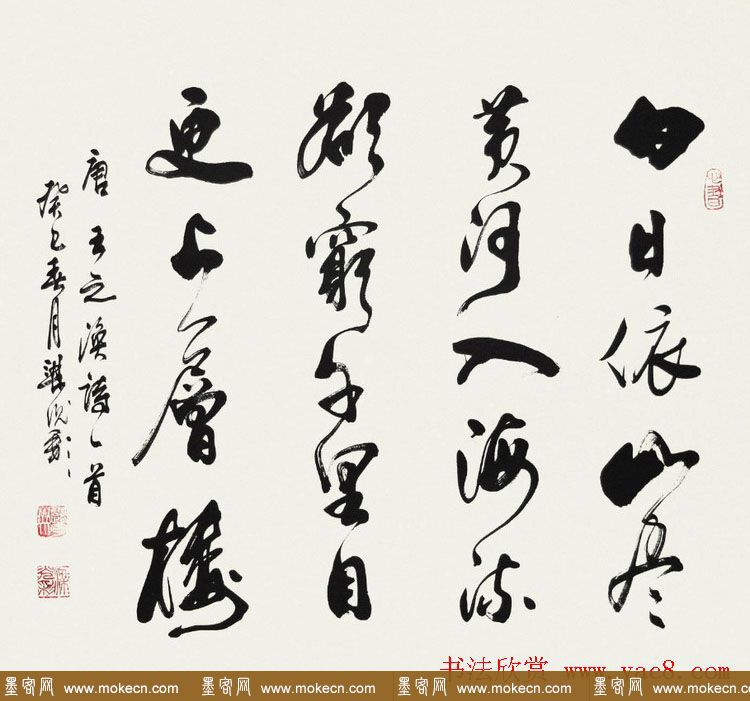 白日依山尽
黄河入海流
欲穷千里目
更上一层楼
唐王之涣诗一首
癸巳春月
书法欣赏 www.yac8.com
墨客网 www.mokecn.com 墨客网 www.mokecn.com 墨客网 www.mokecn.com 墨客网